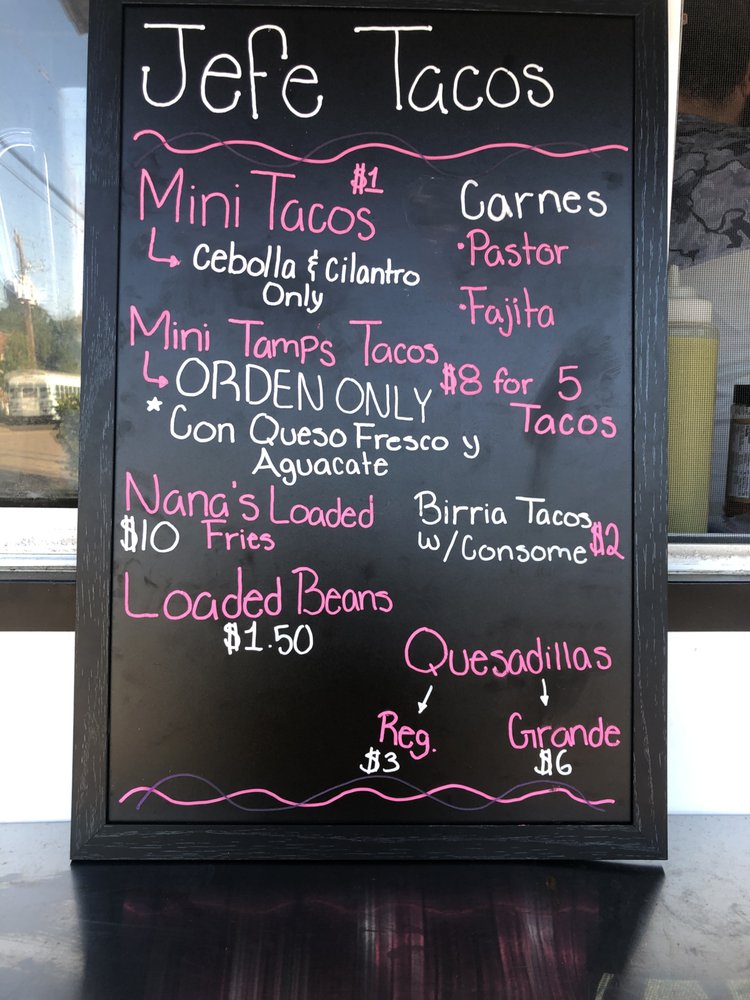 Jefe Tacos
Mini Tacos $1
cebolla & cilantro
Only
Carnes
·Pastor
·Fajita
Mini Tamps Tacos
ORDEN ONLY
$8 for 5
Tacos
* Con Queso Fresco y
Aguacate
Nana's Loaded
$10 Fries
Birria Tacos
w/Consome $2
Loaded Beans
$1.50
Quesadillas
Reg.
$3
Grande
$6